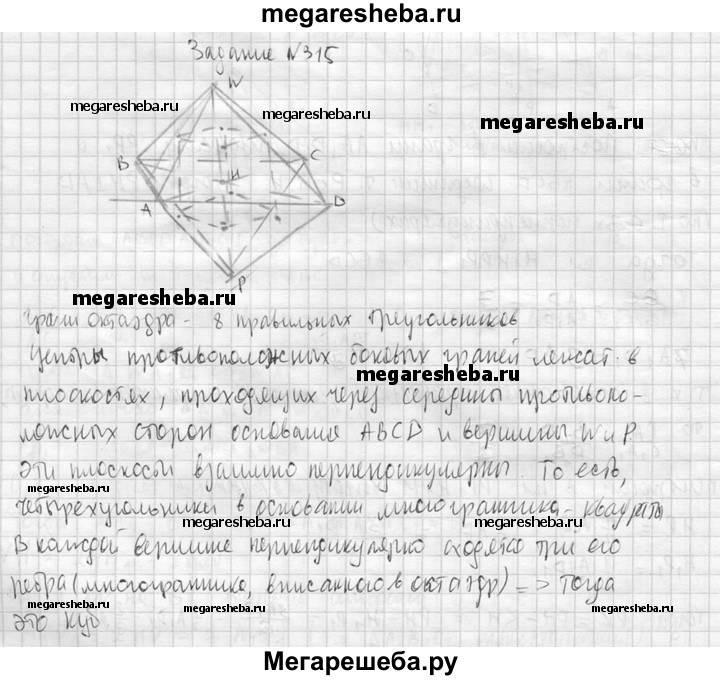 megaresheba.ru
Задание №315
W
megaresheba.ru
megaresheba.ru
megaresheba.ru
B
C
A
D
P
megaresheba.ru
грани октаэдра - 8 правильных треугольников
Центры противоположных боковых граней лежат в
megaresheba.ru
плоскостях, проходящих через середины противопо-
ложных сторон основания ABCD и вершины W и P.
Эти плоскости взаимно перпендикулярны. То есть,
megaresheba.ru
megaresheba.ru
четырехугольники в основании многогранника - квадраты
megaresheba.ru
megaresheba.ru
В каждой вершине перпендикулярно сходятся три его
ребра (многогранника, вписанного в октаэдр) => тогда
megaresheba.ru
megaresheba.ru
megaresheba.ru
это куб
Мегарешеба.ру